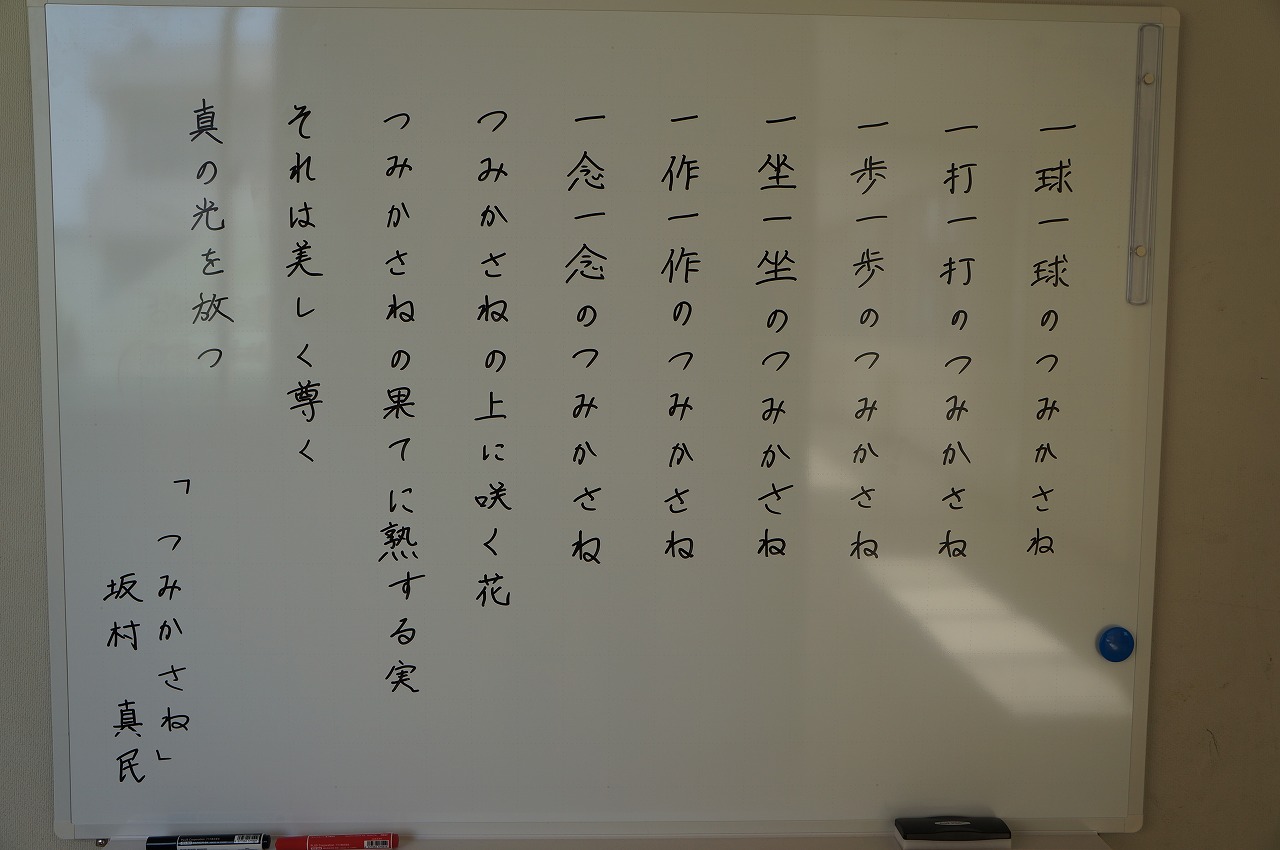 一球一球のつみかさね
一打一打のつみかさね
一歩一歩のつみかさね
一坐一坐のつみかさね
一作一作のつみかさね
一念一念のつみかさね
つみかさねの上に咲く花
つみかさねの果てに熟する実
それは美しく尊く
真の光を放つ
「つみかさね」
坂村 真民